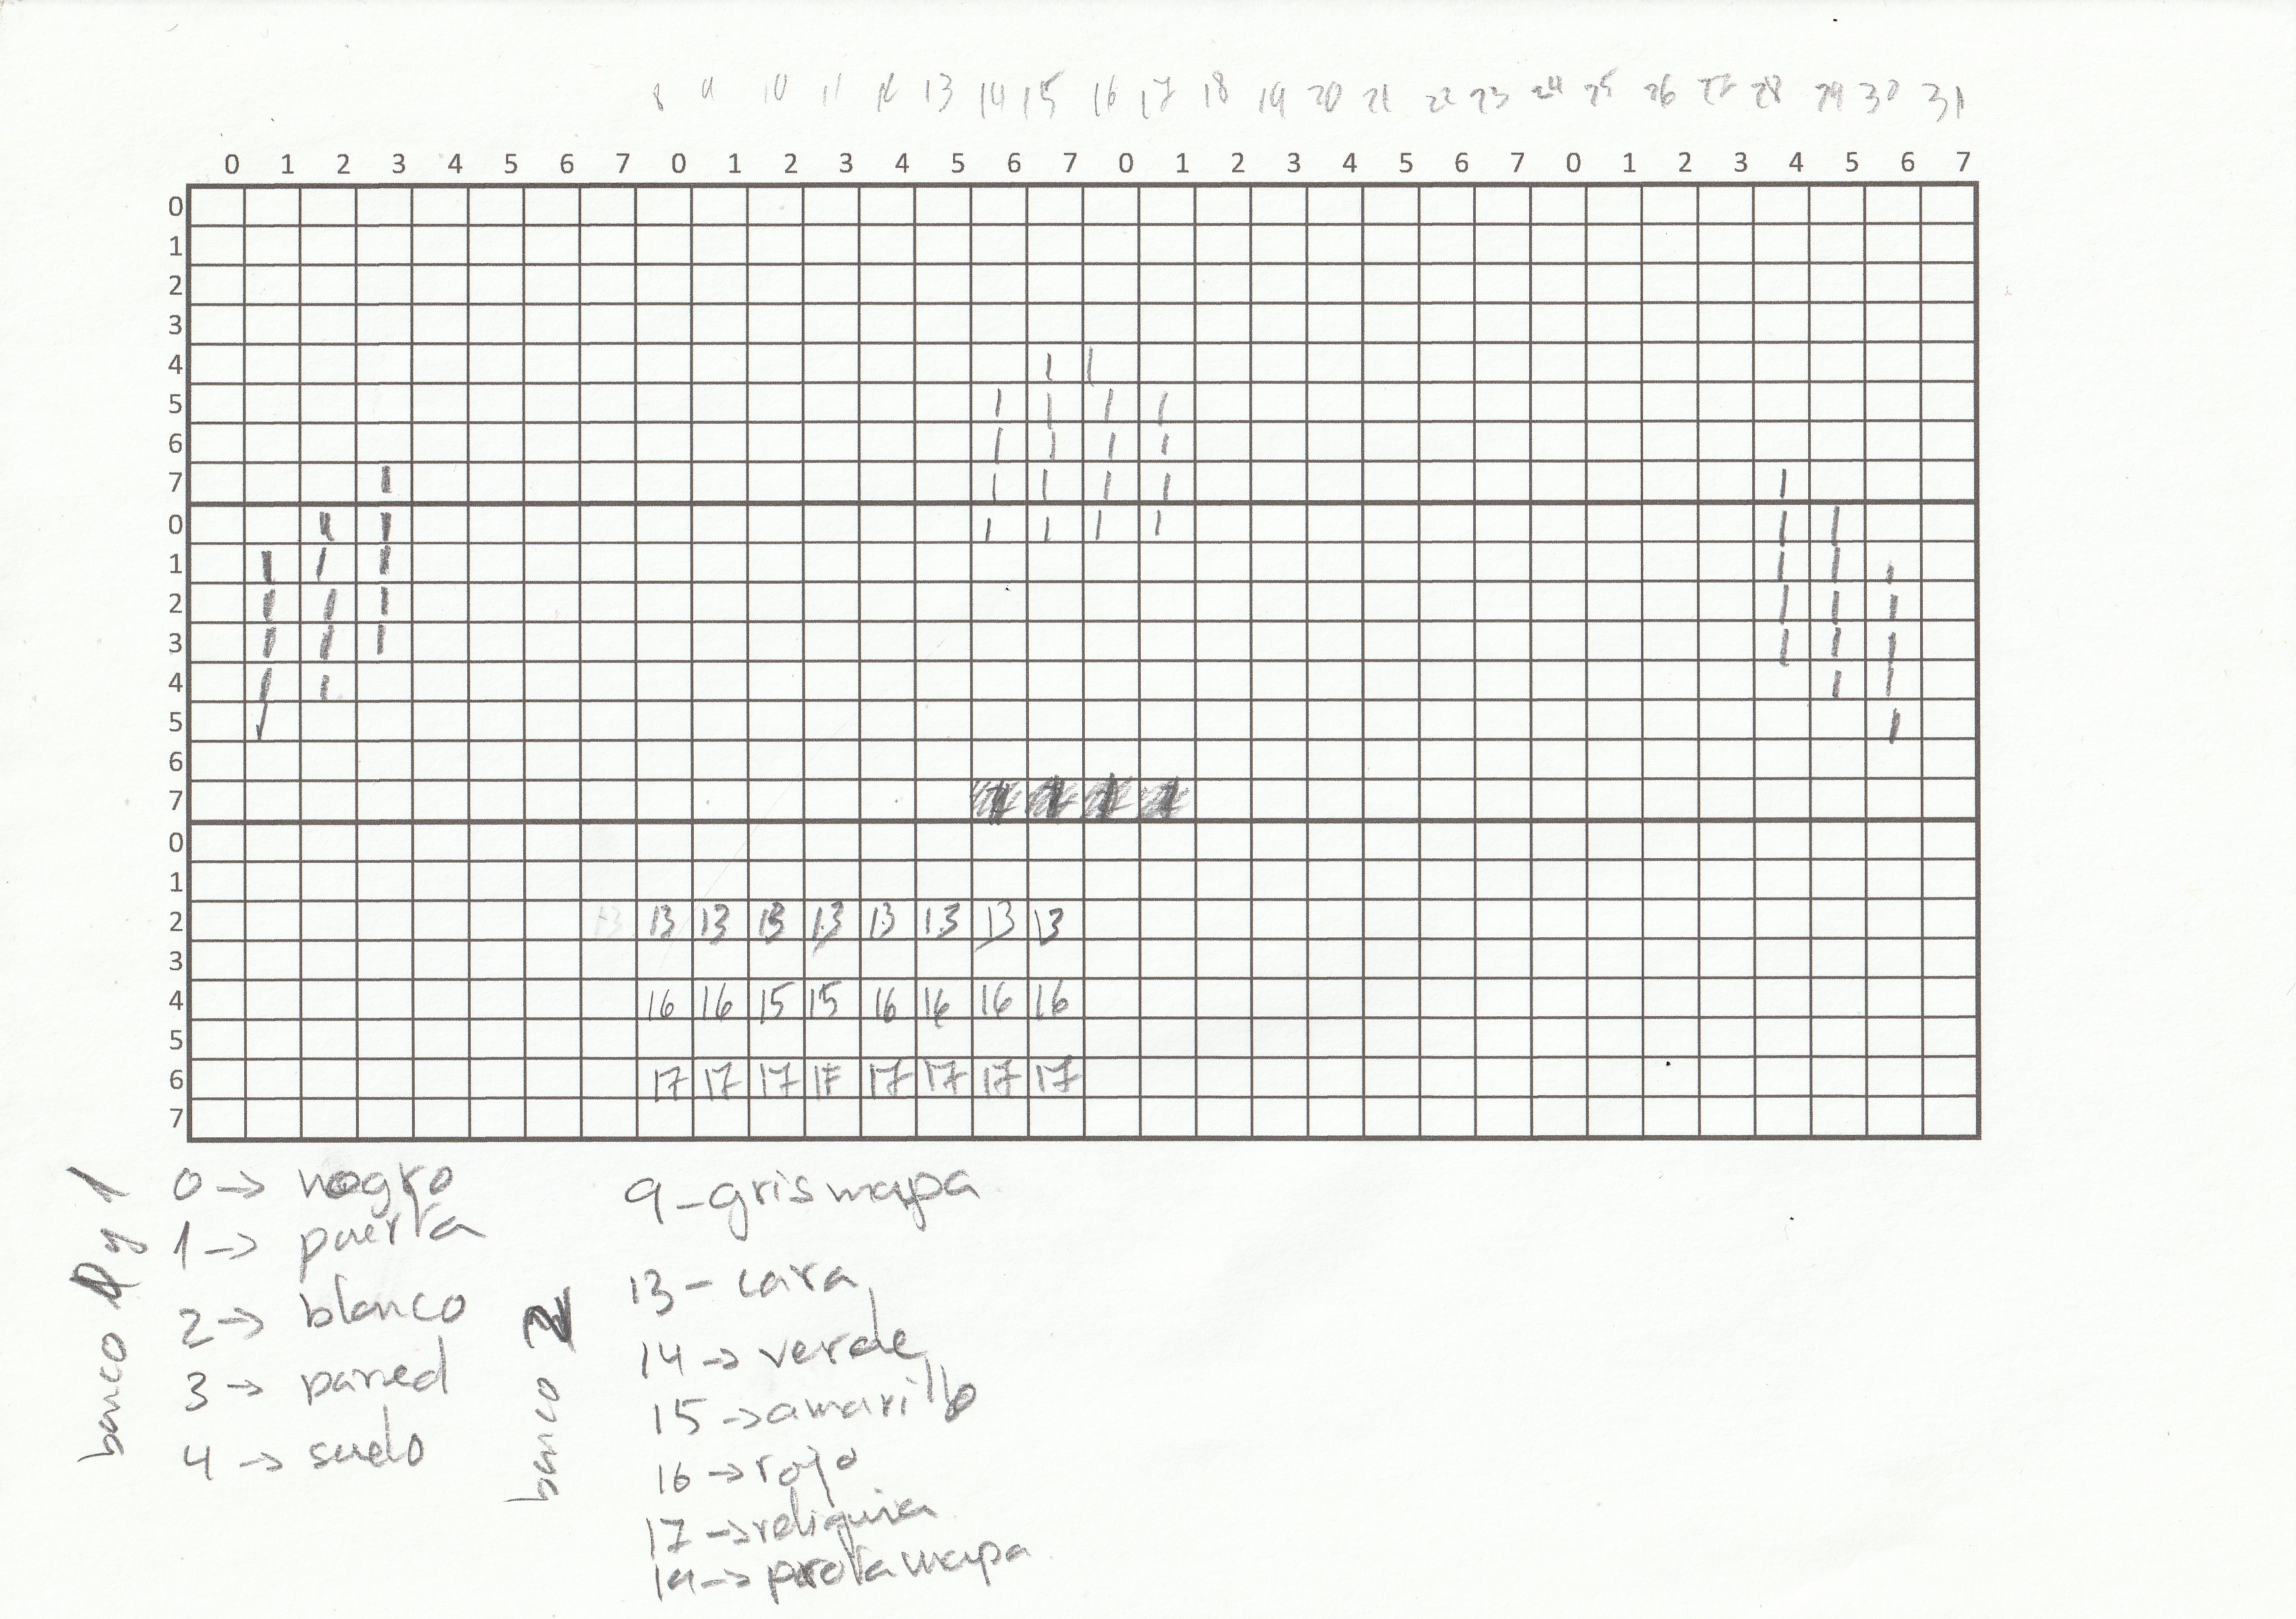 8 9 10 11 12 13 14 15 16 17 18 19 20 21 22 23 24 25 26 27 28 29 30 31
0 1 2 3 4 5 6 7 0 1 2 3 4 5 6 7 0 1 3 4 5 6 7 0 1 2 3 4 5 6 7
0
1
2
3
4 1 1
5 1 1 1 1
6 1 1 1 1
7 1 1 1 1 1 1
0 1 1 1 1 1 1 1 1
1 1 1 1 1 1 1
2 1 1 1 1 1 1
3 1 1 1 1 1 1
4 1 1 1 1
5 1 1
6
7 1 1 1 1
0
1
2 13 13 13 13 13 13 13 13 13
3
4 16 16 15 15 16 16 16 16
5
6 17 17 17 17 17 17 17 17
7
banco y 1
0 -> negro
1 -> puerta
2 -> blanco
3 -> pared
4 -> suelo
banco 2
9 - gris mapa
13 - cara
14 -> verde
15 -> amarillo
16 -> rojo
17 -> reliquia
19 -> prota mapa